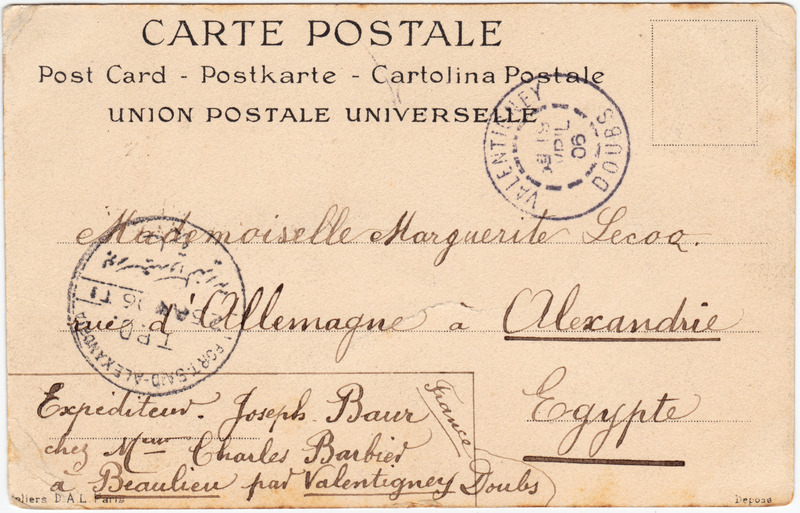 CARTE POSTALE
Post Card - Postkarte - Cartolina Postale
UNION POSTALE UNIVERSELLE
VALENTIGNEY DOUBS
06
Mademoiselle Marguerite Lecoq.
rue d'Allemagne à Alexandrie
Egypte
PORT-SAID-ALEXANDRIA
T.P.O.
Expéditeur. Joseph Baur
chez Mme Charles Barbier
à Beaulieu par Valentigney Doubs
France
Ateliers D.A.L. Paris
Déposé